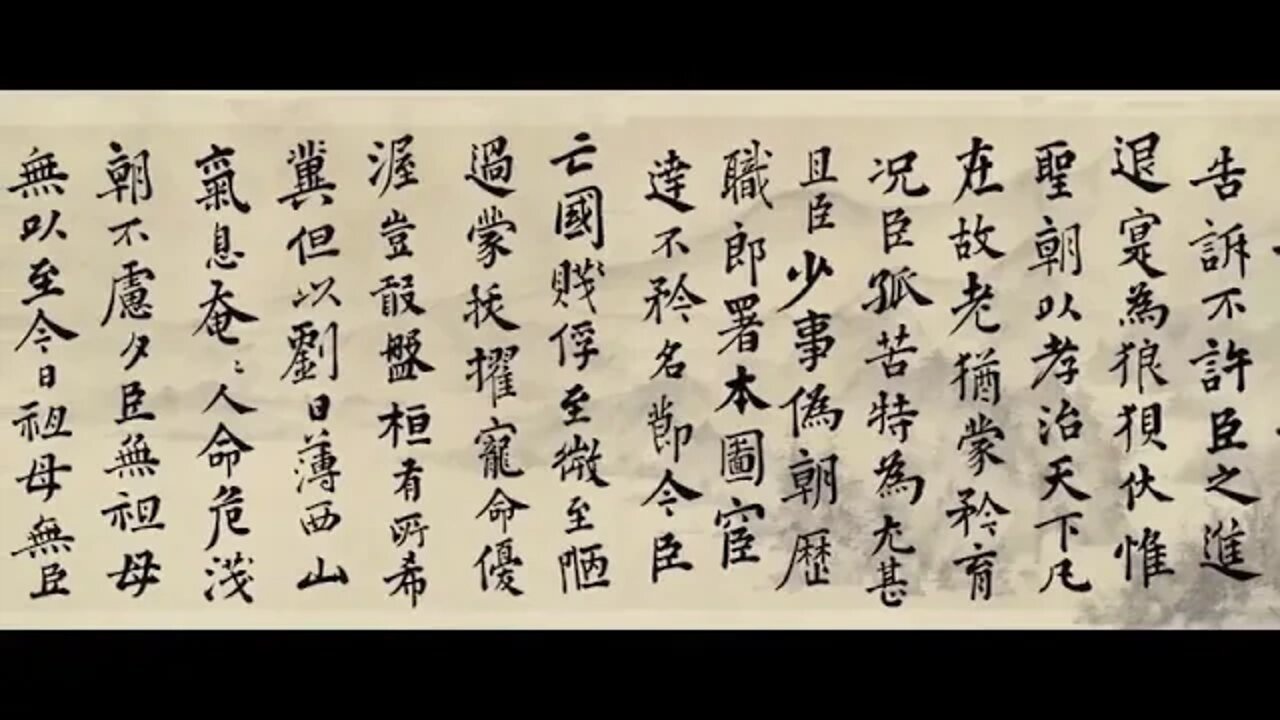 告訴不許臣之進
退寔為狼狽伏惟
聖朝以孝治天下凡
在故老猶蒙矜育
况臣孤苦特為尤甚
且臣少事偽朝歷
職郎署本圖宦
達不矜名節今臣
亡國賤俘至微至陋
過蒙拔擢寵命優
渥豈敢盤桓有所希
冀但以劉日薄西山
氣息奄〻人命危淺
朝不慮夕臣無祖母
無以至今日祖母無臣